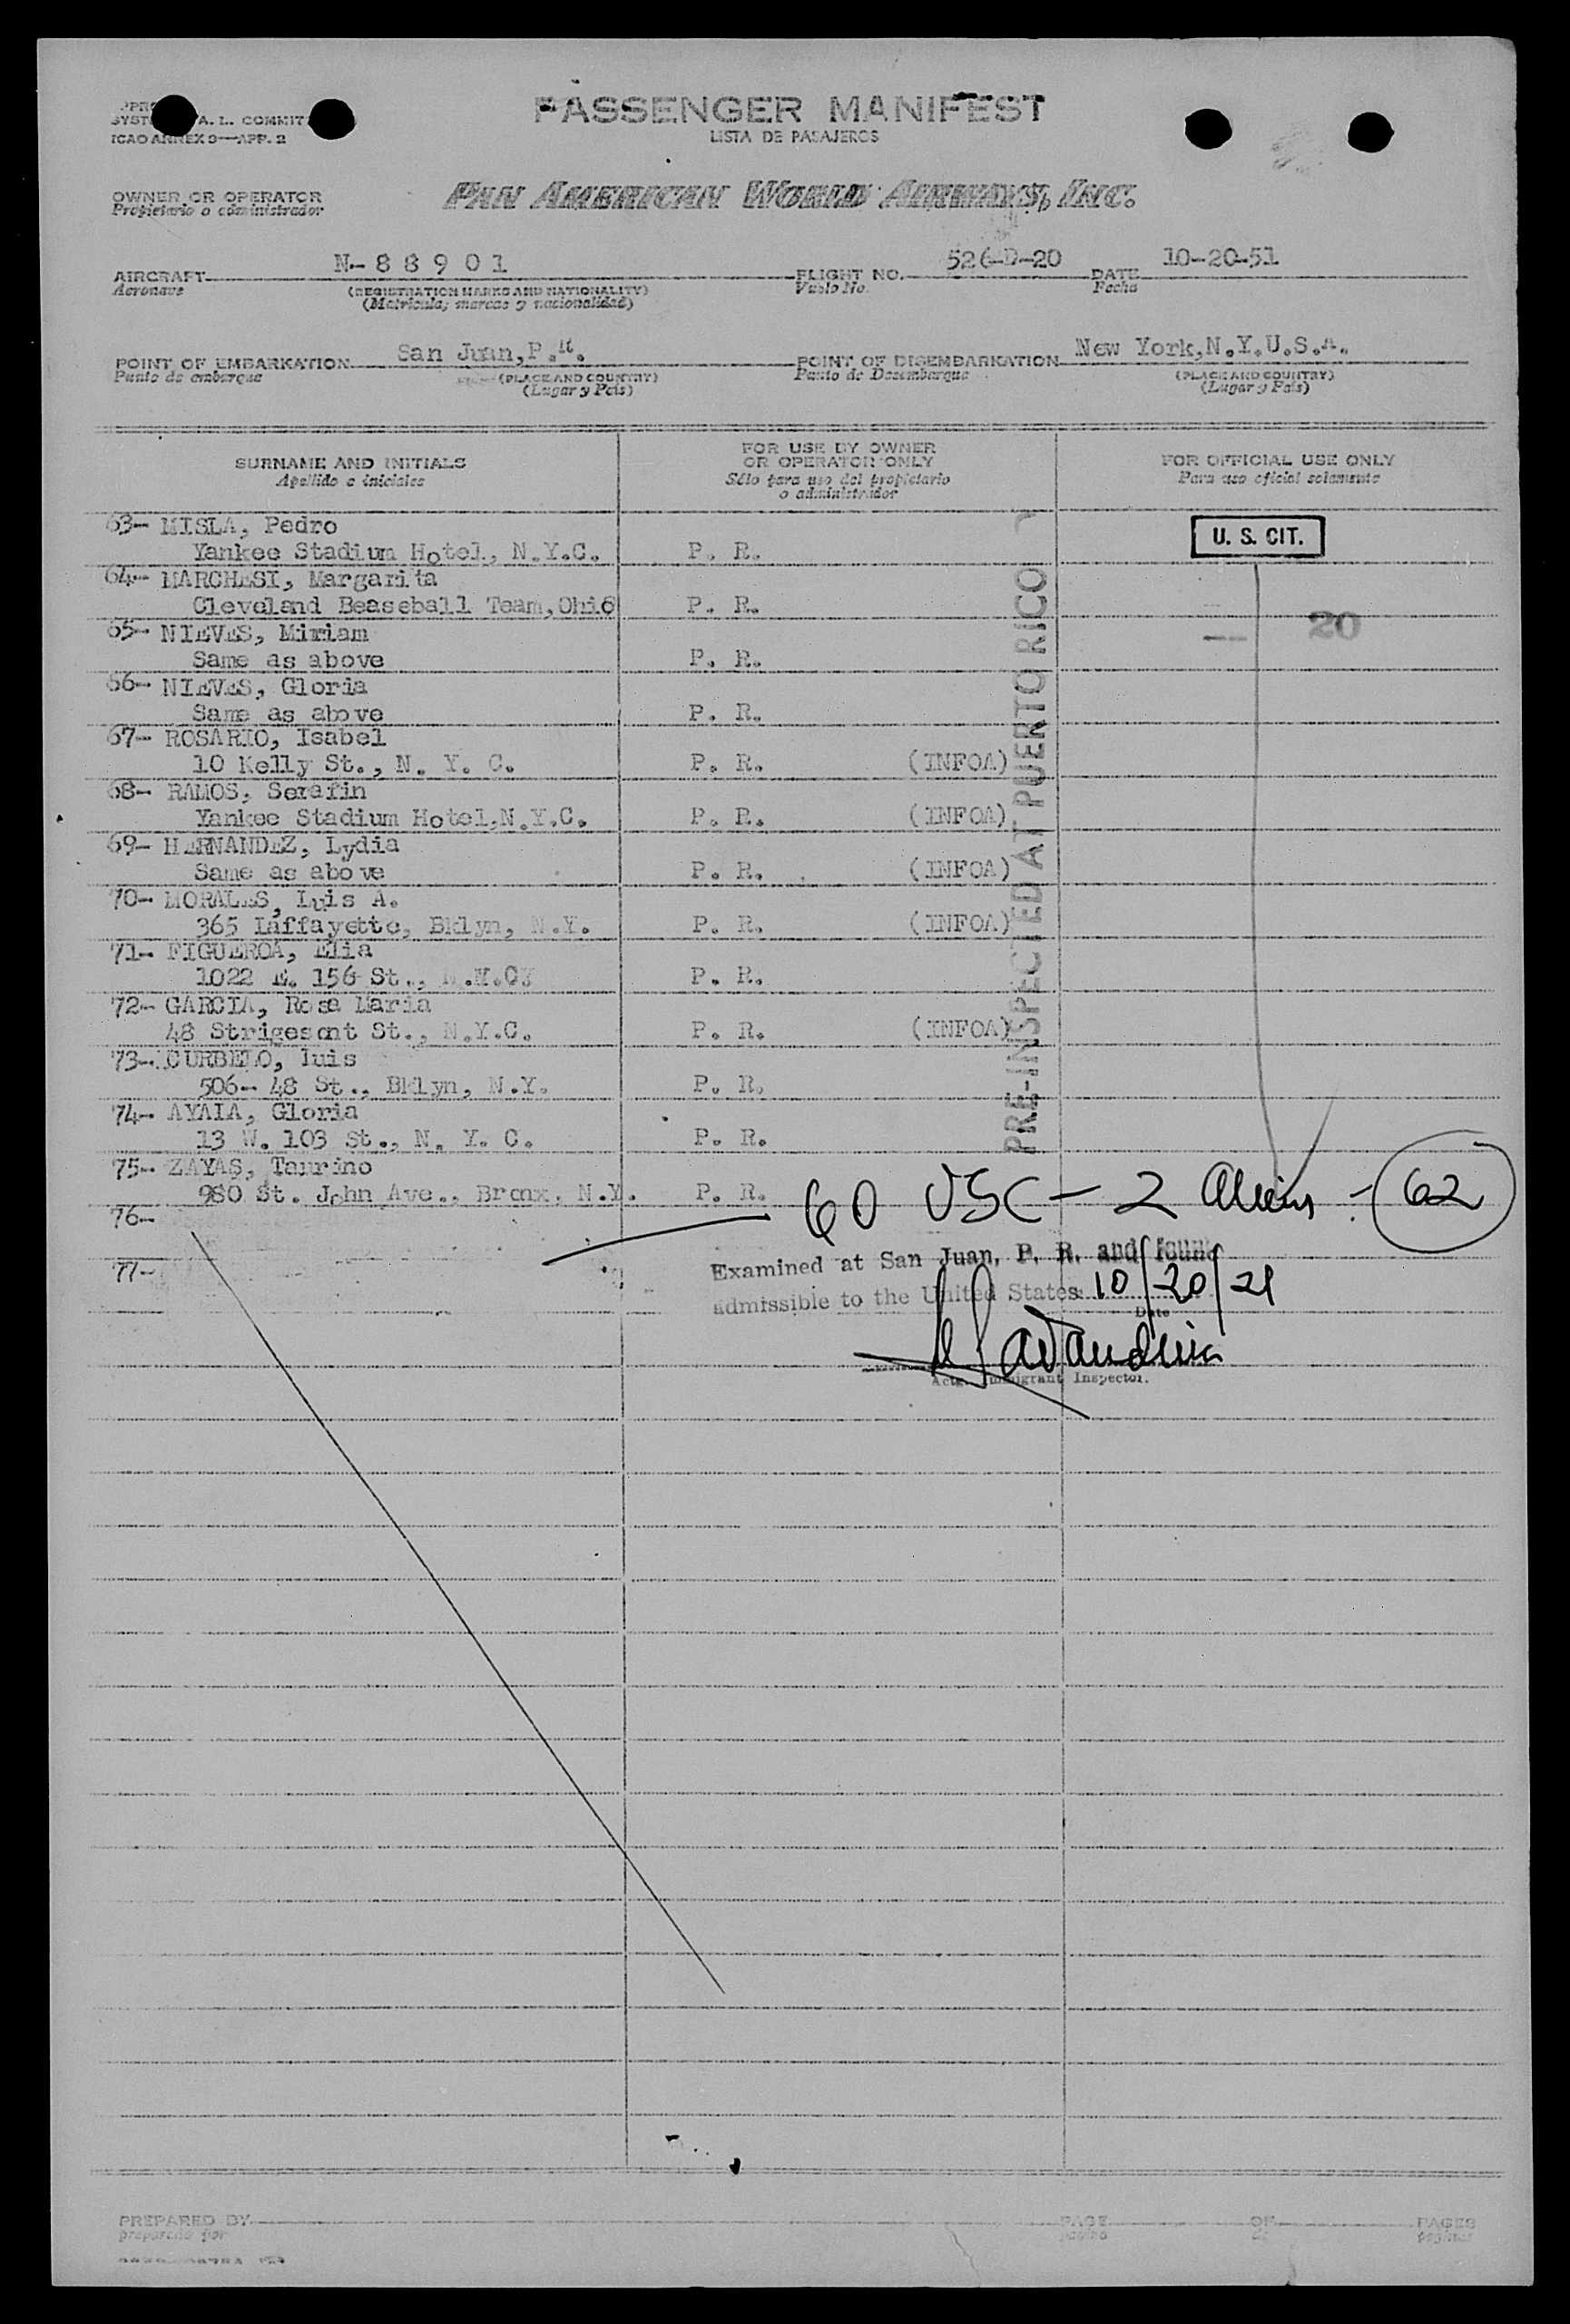 PASSENGER MANIFEST
LISTA DE PASAJEROS
A. L. COMMIT
ICAO ANNEX 9—APP. 2
OWNER OR OPERATOR
Propietario o administrador
PAN AMERICAN WORLD AIRWAYS, INC.
AIRCRAFT N-88901 FLIGHT NO. 526-D-20 DATE 10-20-51
Aeronave (REGISTRATION MARKS AND NATIONALITY) Vuelo No. Fecha
(Matricula, marcas y nacionalidad)
POINT OF EMBARKATION San Juan,P.R. POINT OF DISEMBARKATION New York,N.Y.U.S.A.
Punto de embarque (PLACE AND COUNTRY) Punto de Desembarque (PLACE AND COUNTRY)
(Lugar y País) (Lugar y País)
SURNAME AND INITIALS
Apellido e iniciales
FOR USE BY OWNER
OR OPERATOR ONLY
Sólo para uso del propietario
o administrador
FOR OFFICIAL USE ONLY
Para uso oficial solamente
63- MISLA, Pedro
Yankee Stadium Hotel, N.Y.C. P. R. U. S. CIT.
64- MARCHESI, Margarita
Cleveland Beaseball Team,Ohio P. R.
65- NIEVES, Miriam 20
Same as above P. R.
66- NIEVES, Gloria
Same as above P. R.
67- ROSARIO, Isabel
10 Kelly St., N. Y. C. P. R. (INFOA)
68- RAMOS, Serafin
Yankee Stadium Hotel,N.Y.C. P. R. (INFOA)
69- HERNANDEZ, Lydia
Same as above P. R. (INFOA)
70- MORALES, Luis A.
365 Laffayette, Bklyn, N.Y. P. R. (INFOA)
71- FIGUEROA, Elia
1022 E. 156 St., P. R.
72- GARCIA, Rosa Maria
48 St., N.Y.C. P. R. (INFOA)
73- CURBELO, luis
506- 48 St., Bklyn, N.Y. P. R.
74- AYALA, Gloria
13 W. 103 St., N. Y. C. P. R.
75- ZAYAS, Taurino
980 St. John Ave., Bronx, N.Y. P. R.
PRE-INSPECTED AT PUERTO RICO
60 USC - 2 Aliens - 62
76-
77-
Examined at San Juan, P. R. and found
admissible to the United States 10/20/51
Date
Actg. Immigrant Inspector.
PREPARED BY PAGE OF PAGES
preparado por página de páginas